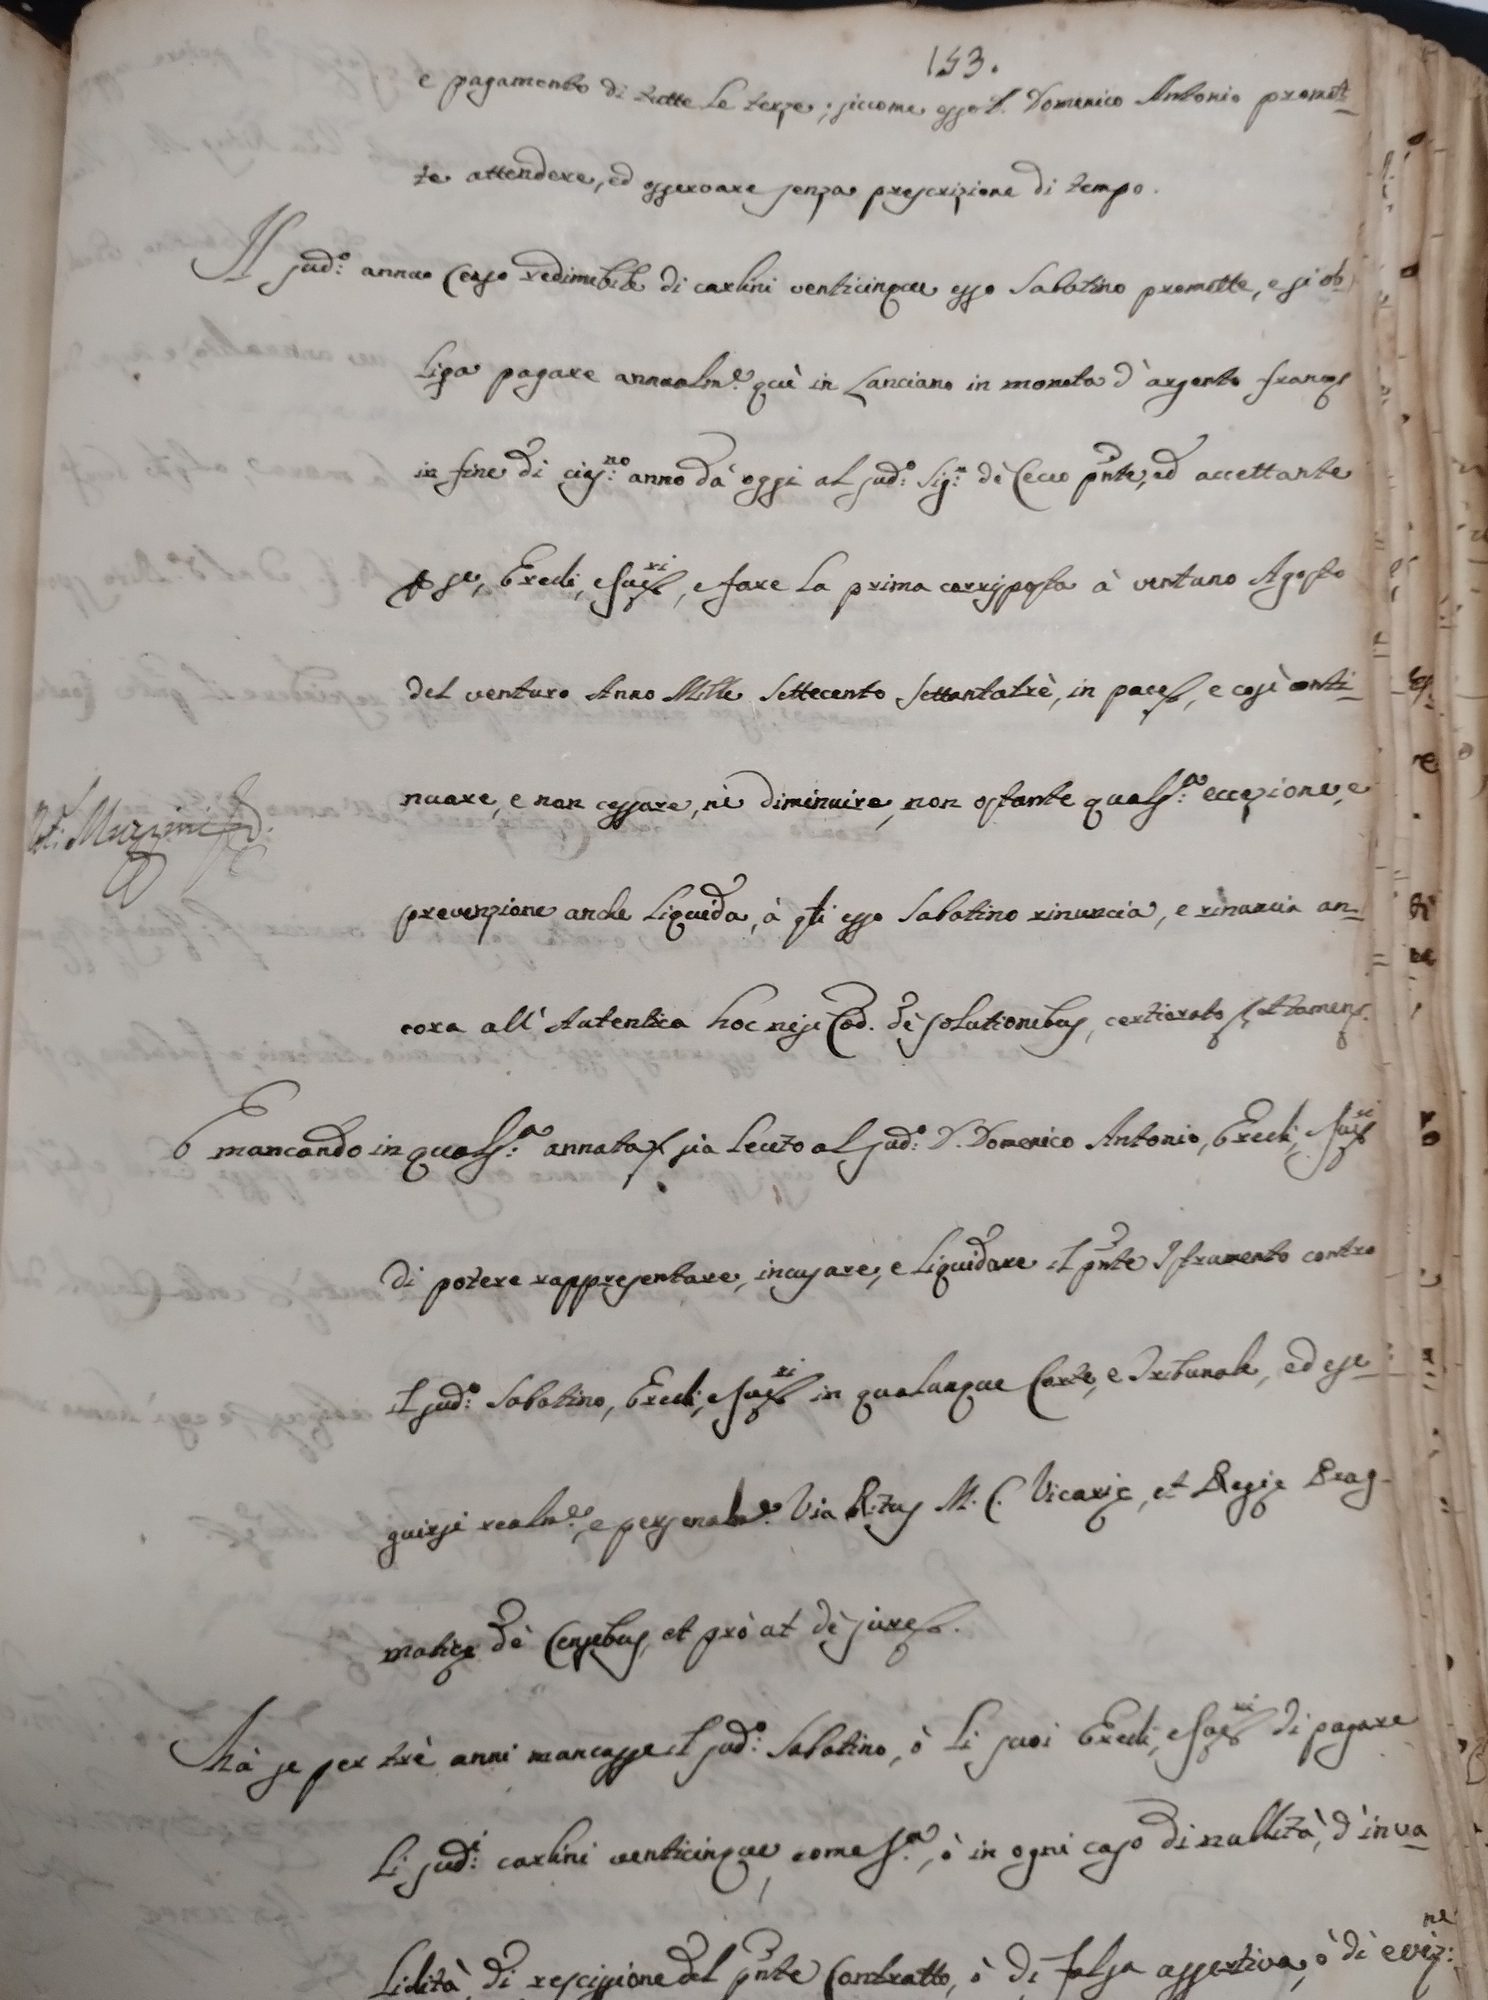 153.
e pagamento di tutte le terze; siccome esso D. Domenico Antonio promet=
te attendere, ed osservare senza prescrizione di tempo.
Il sud:º annuo Censo redimibile di carlini venticinque esso Sabatino promette, e si ob=
liga pagare annualm:e quì in Lanciano in moneta d'argento
in fine di cias:no anno dà oggi al sud:º Sig:r dè Cecco pnte, ed accettante
p se, Eredi, e Suc:ri, e fare la prima corrisposta à ventuno Agosto
del venturo Anno Mille Settecento Settantatrè, in pace, e così conti=
nuare, e non cessare, nè diminuire, non ostante quals:a eccezione, e
prevenzione anche liquida, à qti esso Sabatino rinuncia, e rinuncia an=
cora all'Autentica hoc nisi Cod. dè solutionibus, certiorato
E mancando in quals:a annata sia lecito al sud:º D. Domenico Antonio, Eredi, e Suc:ri
di potere rappresentare, incusare, e liquidare il pnte Istrumento contro
il sud:º Sabatino, Eredi, e Suc:ri in qualunque Corte, e Tribunale, ed ese=
guirsi realm:e, e personalm:e Via Ritus M. C. Vicariæ, et Regiæ Prag=
maticæ dè Censibus, et prò ut dè jure.
Mà se per trè anni mancasse il sud:º Sabatino, ò li suoi Eredi, e Suc:ri di pagare
li sud:i carlini venticinque, come s:a, ò in ogni caso di nullità, d'inva=
lidità, di rescissione del pnte Contratto, ò di falsa assertiva, ò di eviz:ne